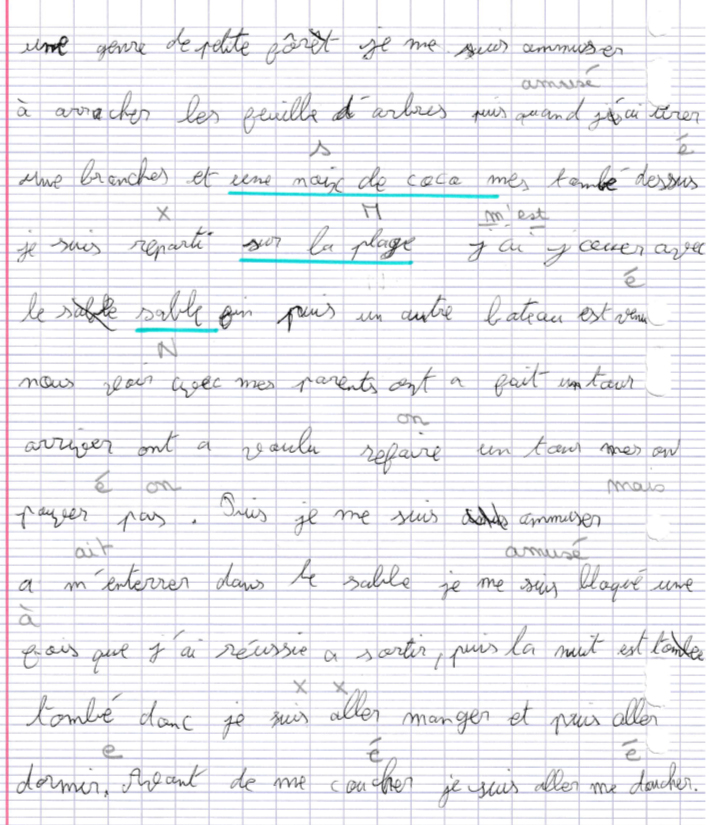 une genre de petite fôrêt je me suis ammuser
amusé
à arracher les feuille d'arbres puis quand j'ai tirer
s é
une branches et une noix de coco mes tombé dessus
x M m'est
je suis reparti sur la plage j'ai jouer avec
é
le sable sable fin puis un autre bateau est venu
N
nous voir avec mes parents ont a fait un tour
on
arriver ont a voulu refaire un tour mes on
é on mais
payer pas. Puis je me suis ammuser
ait amusé
a m'enterrer dans le sable je me suis bloqué une
à
fois que j'ai réussie a sortir, puis la nuit est tombée
x x
tombé donc je suis aller manger et puis aller
e é é
dormir. Avant de me coucher je suis aller me doucher.